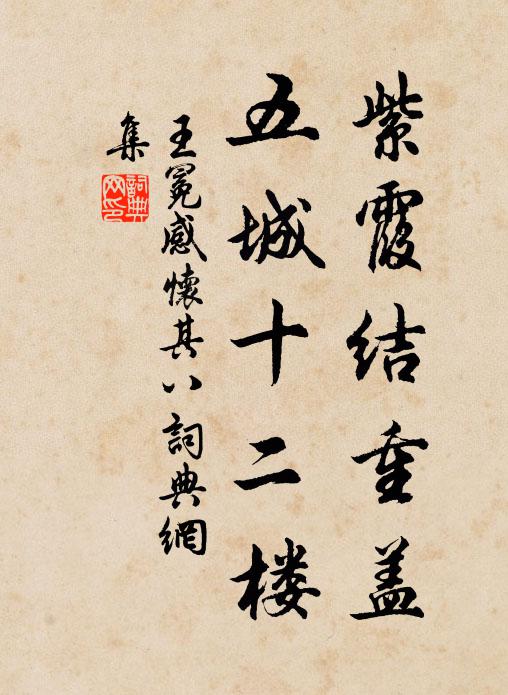 紫霞结重盖
五城十二楼
王冕感懷其八詞典網
集
詞典
网印